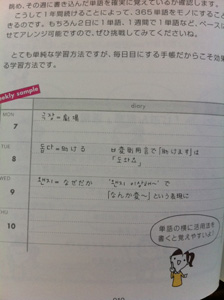 眺め、その週に書き込んだ単語を確実に覚えているか確認します。
こうして1年間続けることによって、365単語をモノにすること
きるのです。もちろん2日に1単語、1週間で1単語など、ペースに
せてアレンジ可能ですので、ぜひ挑戦してみてくださいね。
とても単純な学習方法ですが、毎日目にする手帳だからこそ効
る学習方法です。
weekly sample
diary
MON
7
극장=劇場
TUE
8
돕다=助ける
ㅂ変則用言で「助けます」は
「도와요」
WED
9
왠지=なぜだか
で
「なんか変〜」という表現に
THU
10
単語の横に活用法を
書くと覚えやすいよ!